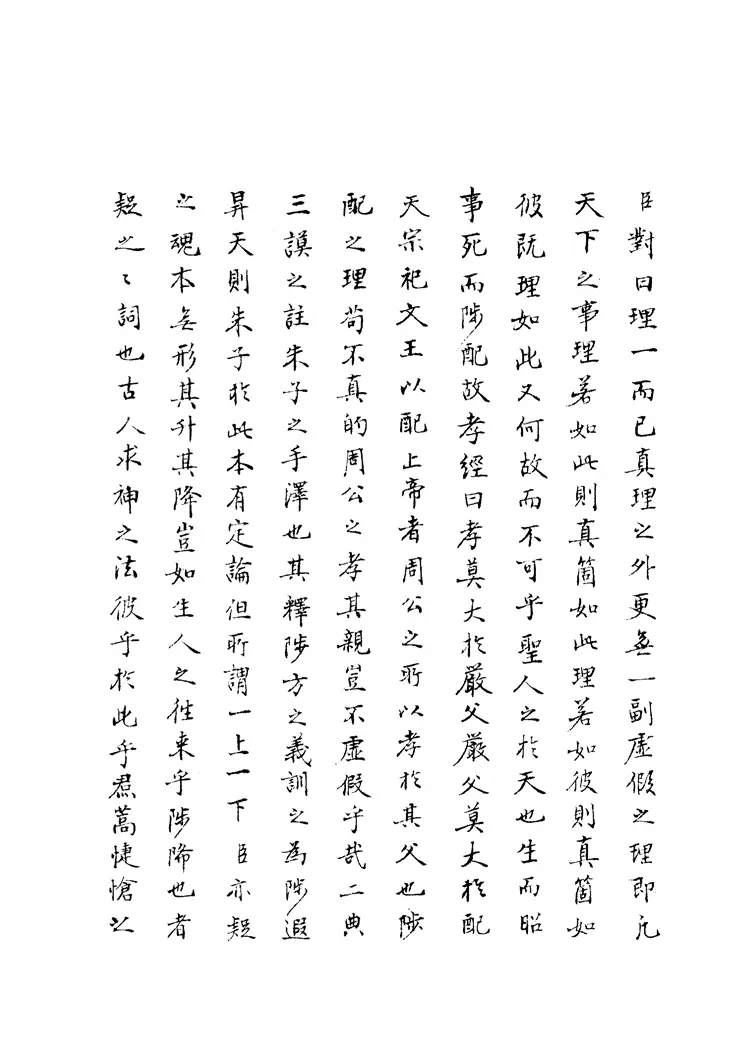 臣對曰理一而已真理之外更無一副虛假之理即凡
天下之事理若如此則真箇如此理若如彼則真箇如
彼既理如此又何故而不可乎聖人之於天也生而昭
事死而陟配故孝經曰孝莫大於嚴父嚴父莫大於配
天宗祀文王以配上帝者周公之所以孝於其父也陟
配之理苟不真的周公之孝其親豈不虛假乎哉二典
三謨之註朱子之手澤也其釋陟方之義訓之為陟遐
昇天則朱子於此本有定論但所謂一上一下臣亦疑
之魂本無形其升其降豈如生人之徃来乎陟降也者
疑之之詞也古人求神之法彼乎於此乎焄蒿悽愴以